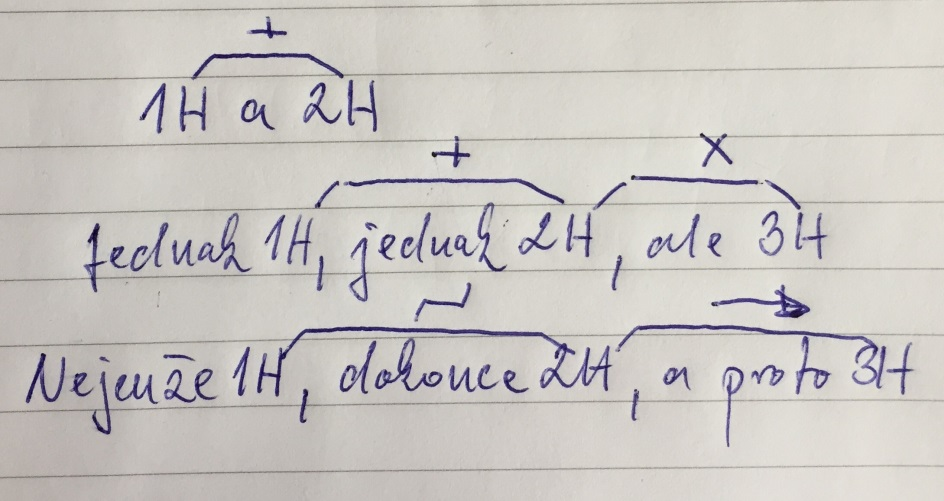 +
1H a 2H
+ x
Jednak 1H, jednak 2H, ale 3H
→
Nejenže 1H, dokonce 2H, a proto 3H